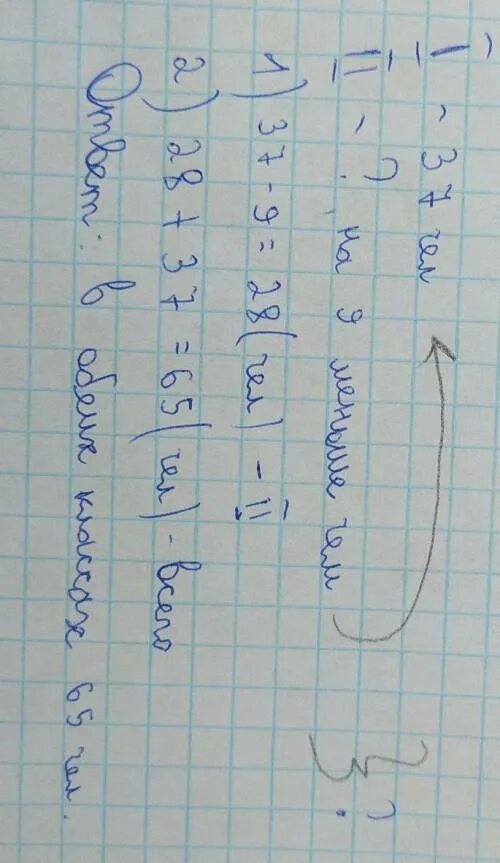 I - 37 чел
II - ? на 9 меньше чем } ?
1) 37 - 9 = 28 (чел) - II
2) 28 + 37 = 65 (чел) - всего
Ответ: в обеих классах 65 чел.